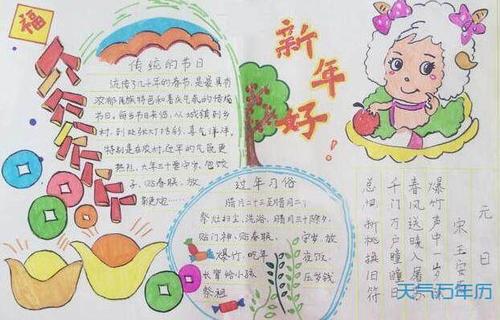 福
传统的节日
流传了几千年的春节,是最具有
浓郁民族特色和喜庆气氛的传统
节日。每当节日来临,从城镇到乡
村,到处张灯结彩,喜气洋洋,
特别是在农村,过年的气氛更
热烈,大年三十要守岁,包饺
子,贴春联,放
新年好
过年习俗
腊月二十三至腊月二
祭灶扫尘、洗浴,腊月三十除夕,
贴门神、贴春联、守岁、放
爆竹、吃年夜饭、
长辈给小孩压岁钱
祭祖
元日
宋 王安
爆竹声中
春风送暖入屠
千门万
总把新桃换旧符
天气万年历